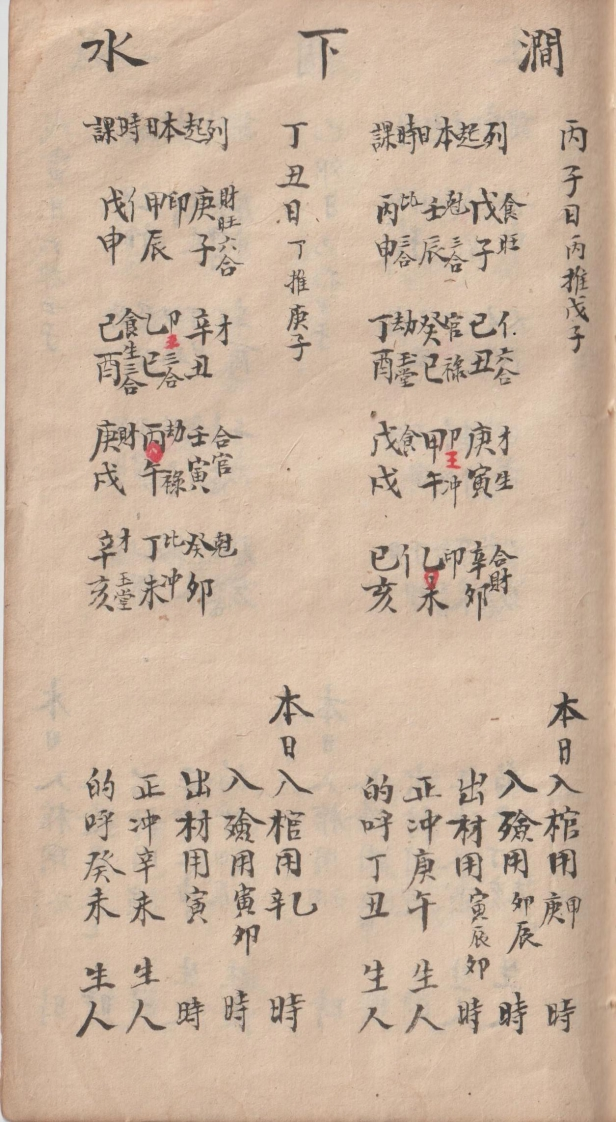 澗下水
丙子日丙推戊子
列起本日時課
戊子食旺 己丑亻六合 庚寅才生 辛卯合財
壬辰尅三合 癸巳官祿 甲午卩王冲 乙未印
丙申比三合 丁酉劫玉堂 戊戌食 己亥亻
本日入棺用甲庚時
入殮用卯辰時
出材用寅辰卯時
正冲庚午生人
的呼丁丑生人
丁丑日丁推庚子
列起本日時課
庚子財旺六合 辛丑才 壬寅合官 癸卯尅
甲辰印 乙巳卩王三合 丙午劫祿 丁未比冲
戊申亻 己酉食生三合 庚戌財 辛亥才玉堂
本日入棺用乙辛時
入殮用寅卯時
出材用寅時
正冲辛未生人
的呼癸未生人